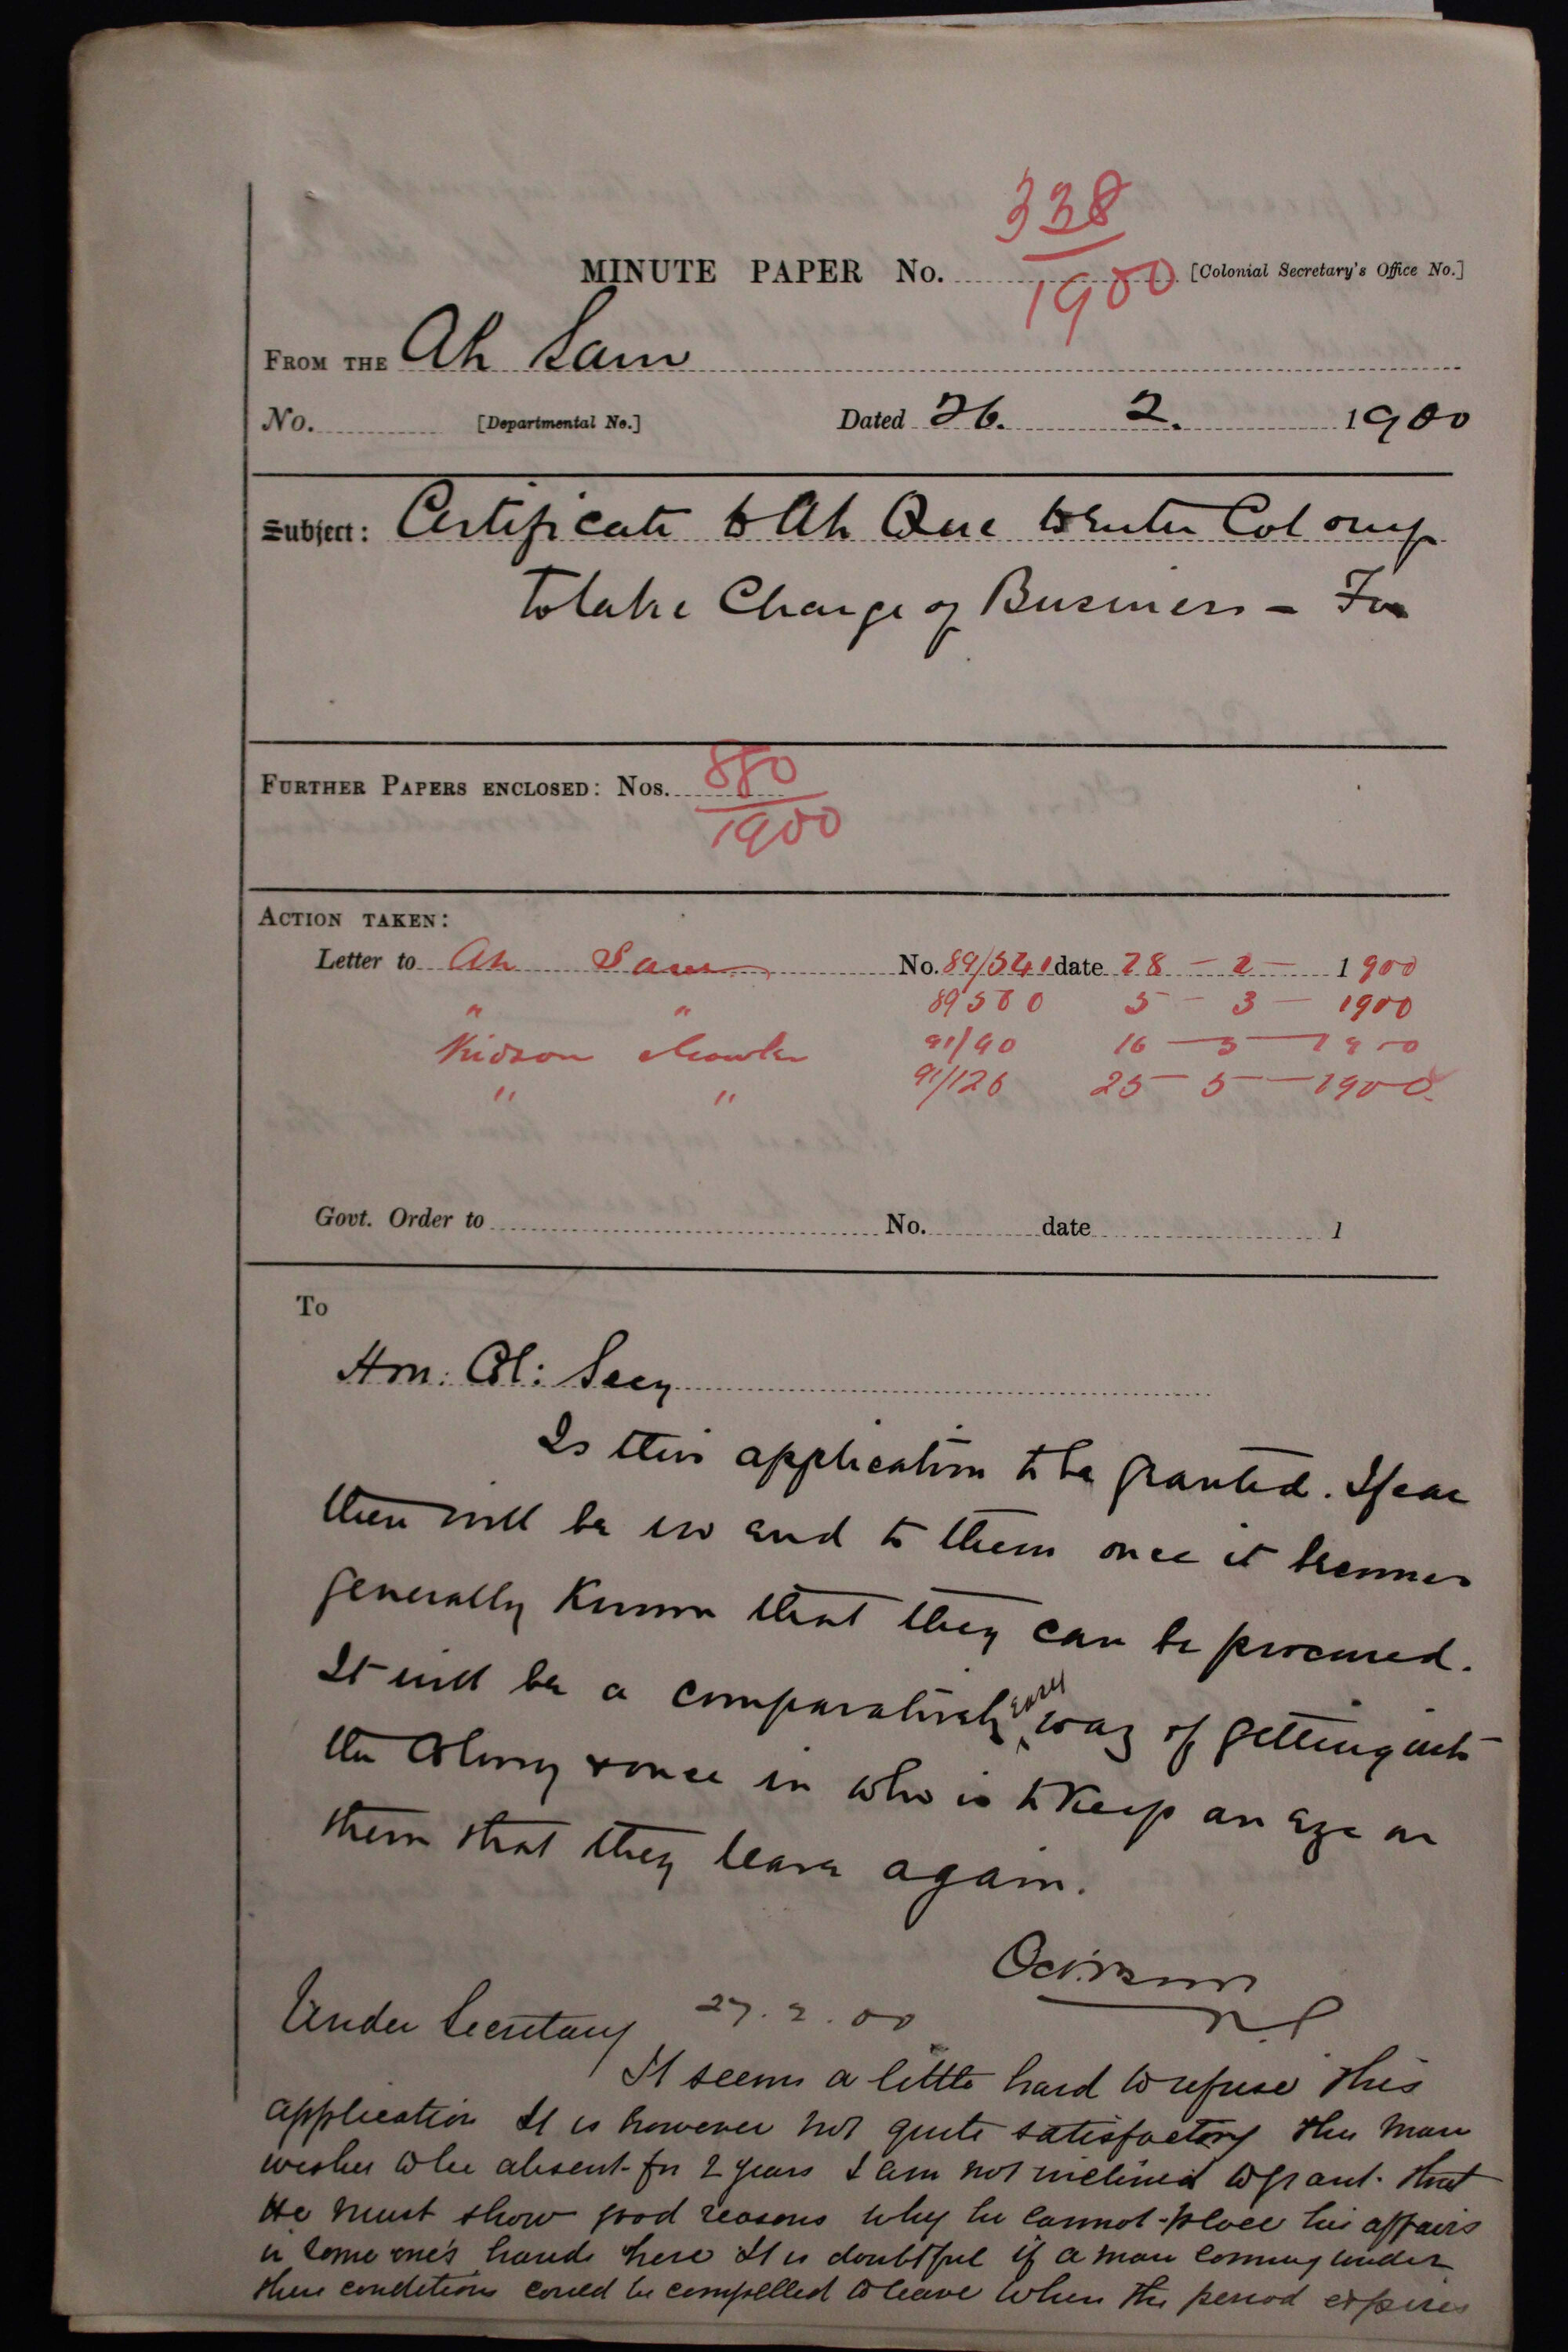 338
1900
MINUTE PAPER No. [Colonial Secretary's Office No.]
FROM THE Ah Sam
No. [Departmental No.] Dated 26. 2. 1900
Subject: Certificate to Ah Que to enter Colony
to take Charge of Business - For
FURTHER PAPERS ENCLOSED: Nos. 880
1900
ACTION TAKEN:
Letter to Ah Sam No. 89/541 date 28 - 2 - 1900
" " 89580 5 - 3 - 1900
Kidson 91/90 16 - 5 - 1900
" " 91/126 25 - 5 - 1900
Govt. Order to No. date 1
To
Hon: Col: Secy
Is this application to be granted. I fear
there will be no end to them once it becomes
generally known that they can be procured.
It will be a comparatively easy way of getting into
the Colony & once in who is to keep an eye on
them that they leave again.
27.2.00
Under Secretary
It seems a little hard to refuse this
application It is however not quite satisfactory the man
wishes to be absent for 2 years I am not inclined to grant that
He must show good reasons why he cannot place his affairs
in some one's hands here It is doubtful if a man coming under
these conditions could be compelled to leave when the period expires